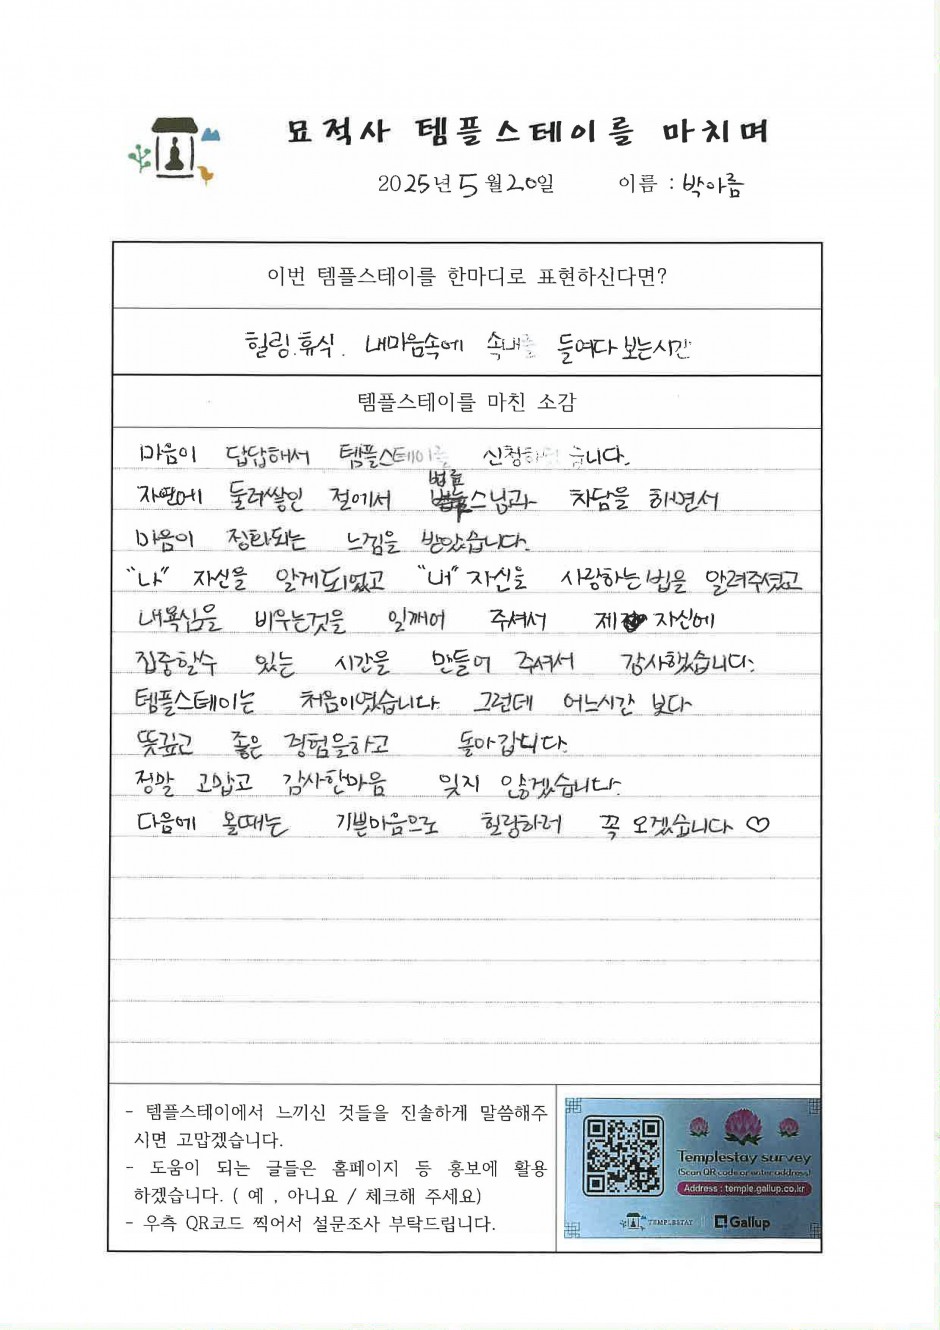 묘적사 템플스테이를 마치며
2025년 5월 20일 이름 : 박아름
이번 템플스테이를 한마디로 표현하신다면?
힐링.휴식. 내마음속에 속내를 들여다 보는시간
템플스테이를 마친 소감
마음이 답답해서 템플스테이를 신청하였습니다.
법륜
자연에 둘러쌓인 절에서 스님과 차담을 하면서
마음이 정화되는 느낌을 받았습니다.
"나" 자신을 알게되었고 "내" 자신을 사랑하는법을 알려주셨고
내욕심을 비우는것을 일깨어 주셔서 제 자신에
집중할수 있는 시간을 만들어 주셔서 감사했습니다.
템플스테이는 처음이였습니다. 그런데 어느시간 보다
뜻깊고 좋은 경험을하고 돌아갑니다.
정말 고맙고 감사한마음 잊지 않겠습니다.
다음에 올때는 기쁜마음으로 힐링하러 꼭 오겠습니다 ♡
- 템플스테이에서 느끼신 것들을 진솔하게 말씀해주
시면 고맙겠습니다.
- 도움이 되는 글들은 홈페이지 등 홍보에 활용
하겠습니다. ( 예 , 아니요 / 체크해 주세요)
- 우측 QR코드 찍어서 설문조사 부탁드립니다.
Templestay survey
(Scan QR code or enter address)
Address : temple.gallup.co.kr
TEMPLESTAY | Gallup